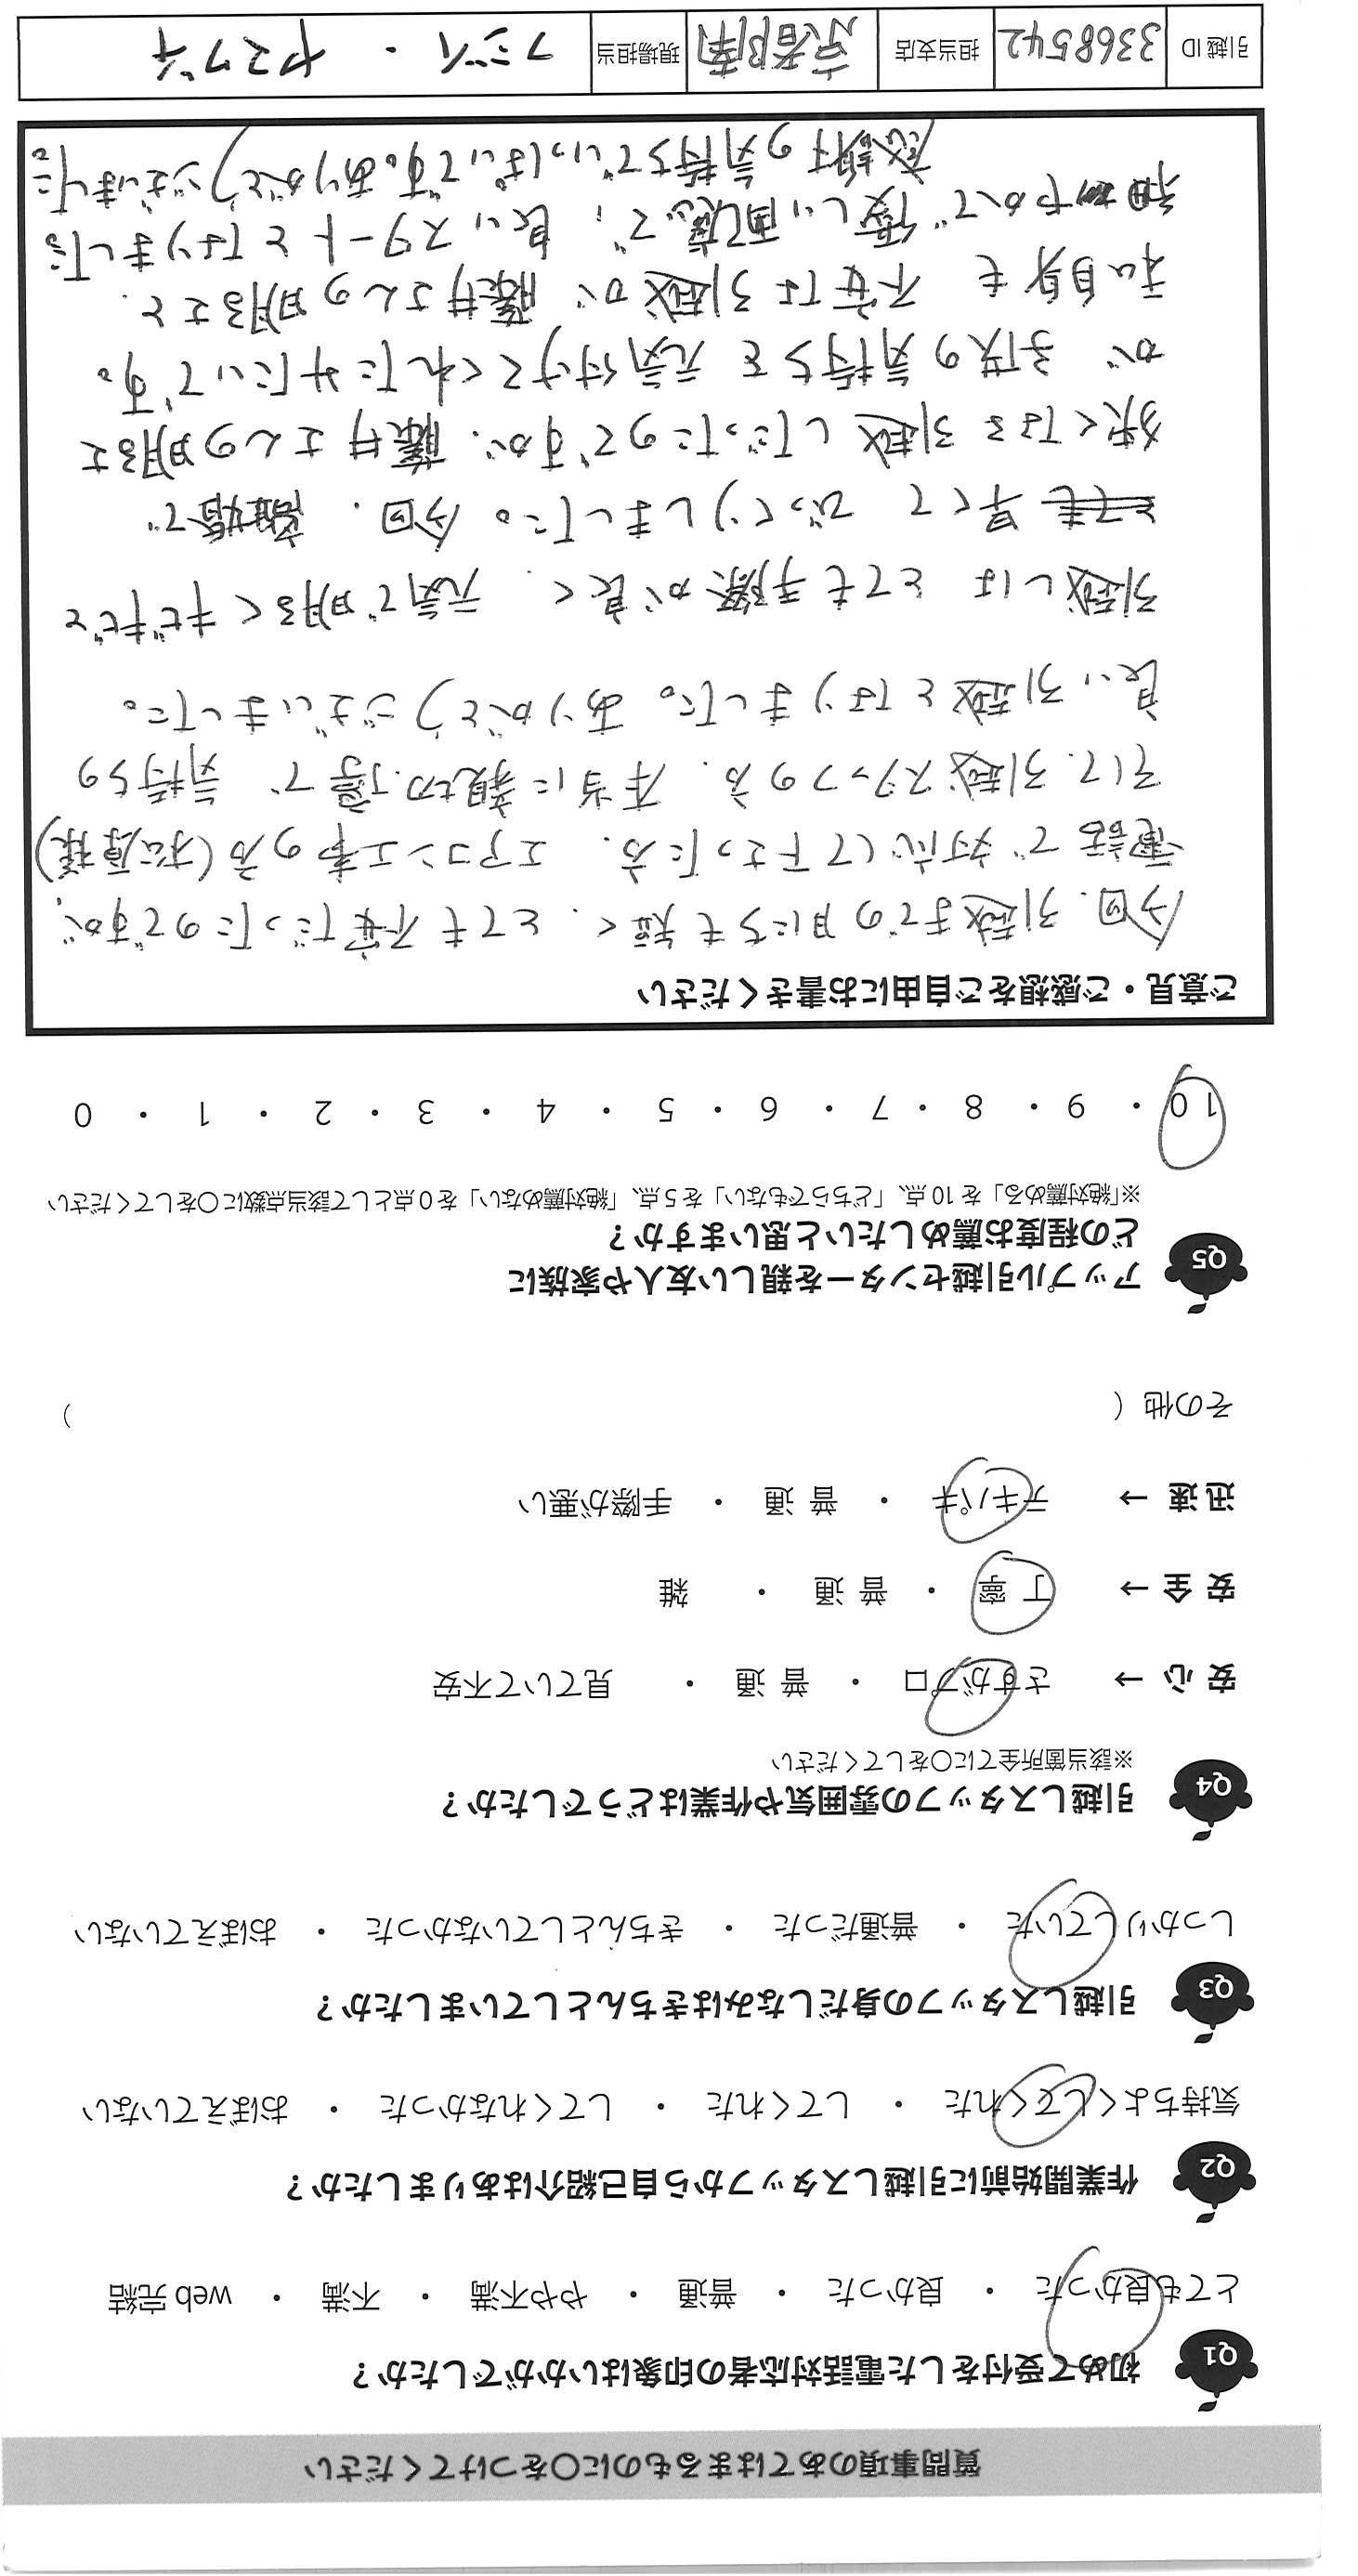 質問事項のあてはまるものに〇をつけてください
Q1 初めて受付をした電話対応者の印象はいかがでしたか?
とても良かった ・ 良かった ・ 普通 ・ やや不満 ・ 不満 ・ web 完結
Q2 作業開始前に引越しスタッフから自己紹介はありましたか?
気持ちよくしてくれた ・ してくれた ・ してくれなかった ・ おぼえていない
Q3 引越しスタッフの身だしなみはきちんとしていましたか?
しっかりしていた ・ 普通だった ・ きちんとしていなかった ・ おぼえていない
Q4 引越しスタッフの雰囲気や作業はどうでしたか?
※該当箇所全てに〇をしてください
安心 → さすがプロ ・ 普通 ・ 見ていて不安
安全 → 丁寧 ・ 普通 ・ 雑
迅速 → テキパキ ・ 普通 ・ 手際が悪い
その他 ( )
Q5 アップル引越センターを親しい友人や家族に
どの程度お薦めしたいと思いますか?
※「絶対薦める」を 10 点、「どちらでもない」を 5 点、「絶対薦めない」を 0 点として該当点数に〇をしてください
10 ・ 9 ・ 8 ・ 7 ・ 6 ・ 5 ・ 4 ・ 3 ・ 2 ・ 1 ・ 0
ご意見・ご感想をご自由にお書きください
今回、引越までの日にちも短く、とても不安だったのですが、
電話で対応して下さった方、エアコン工事の方(松原様)
そして、引越スタッフの方、本当に親切、丁寧で、気持ちの
良い引越となりました。ありがとうございました。
引越しは とても手際が良く、元気で明るく キビキビと
とても 早くて びっくりしました。今回、離婚で
狭くなる引越しだったのですが、藤井さんの明るさ
が 子供の気持ちを 元気付けてくれたみたいです。
私自身も 不安な引越が 藤井さんの明るさと、
細やかで 優しい配慮で、良いスタートとなりました
感謝の気持ちでいっぱいです。ありがとうございました。
引越 ID 3368542 担当支店 京都南 現場担当 フジイ ・ ヤマグチ